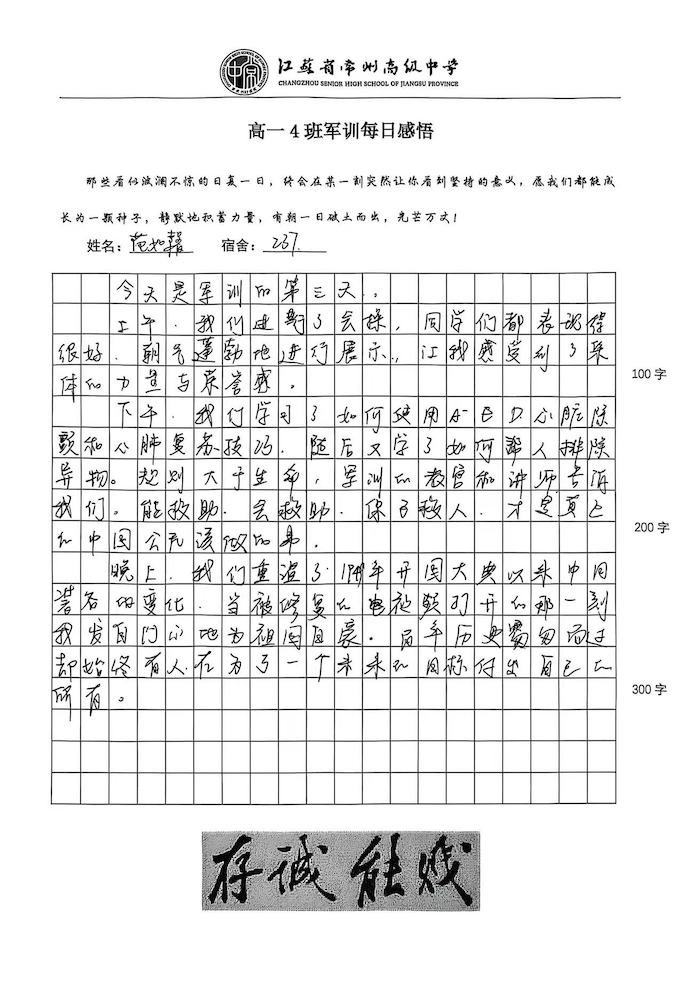 江苏省常州高级中学
CHANGZHOU SENIOR HIGH SCHOOL OF JIANGSU PROVINCE
高一4班军训每日感悟
那些看似波澜不惊的日复一日，终会在某一刻突然让你看到坚持的意义，愿我们都能成
长为一颗种子，静默地积蓄力量，有朝一日破土而出，光芒万丈！
姓名： 宿舍：237.
今天是军训的第三天。
上午，我们进行了会操，同学们都表现得
很好，朝气蓬勃地进行展示，让我感受到了集
100字
体的力量与荣誉感。
下午，我们学习了如何使用A-E D心脏除
颤和心肺复苏技巧，随后又学了如何帮人排除
异物。规则大于生命，军训的教官和讲师告诉
我们。能救助，会救助，保己救人，才是真正
200字
的中国公民该做的事。
晚上，我们重温了1949年开国大典以来中国
装备的变化，当被修复的电被打开的那一刻
我发自内心地为祖国自豪。百年历史匆匆而过
却始终有人在为了一个未来的目标付出自己的
300字
所有。
存诚能贱